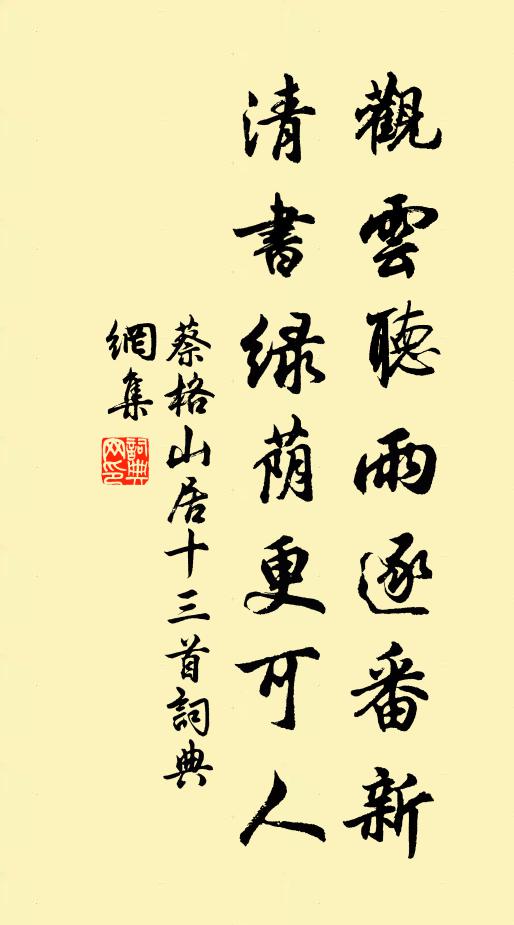 觀雲聽雨逐番新
清書緑荫更可人
蔡格山居十三首詞典
網集
詞典
网印